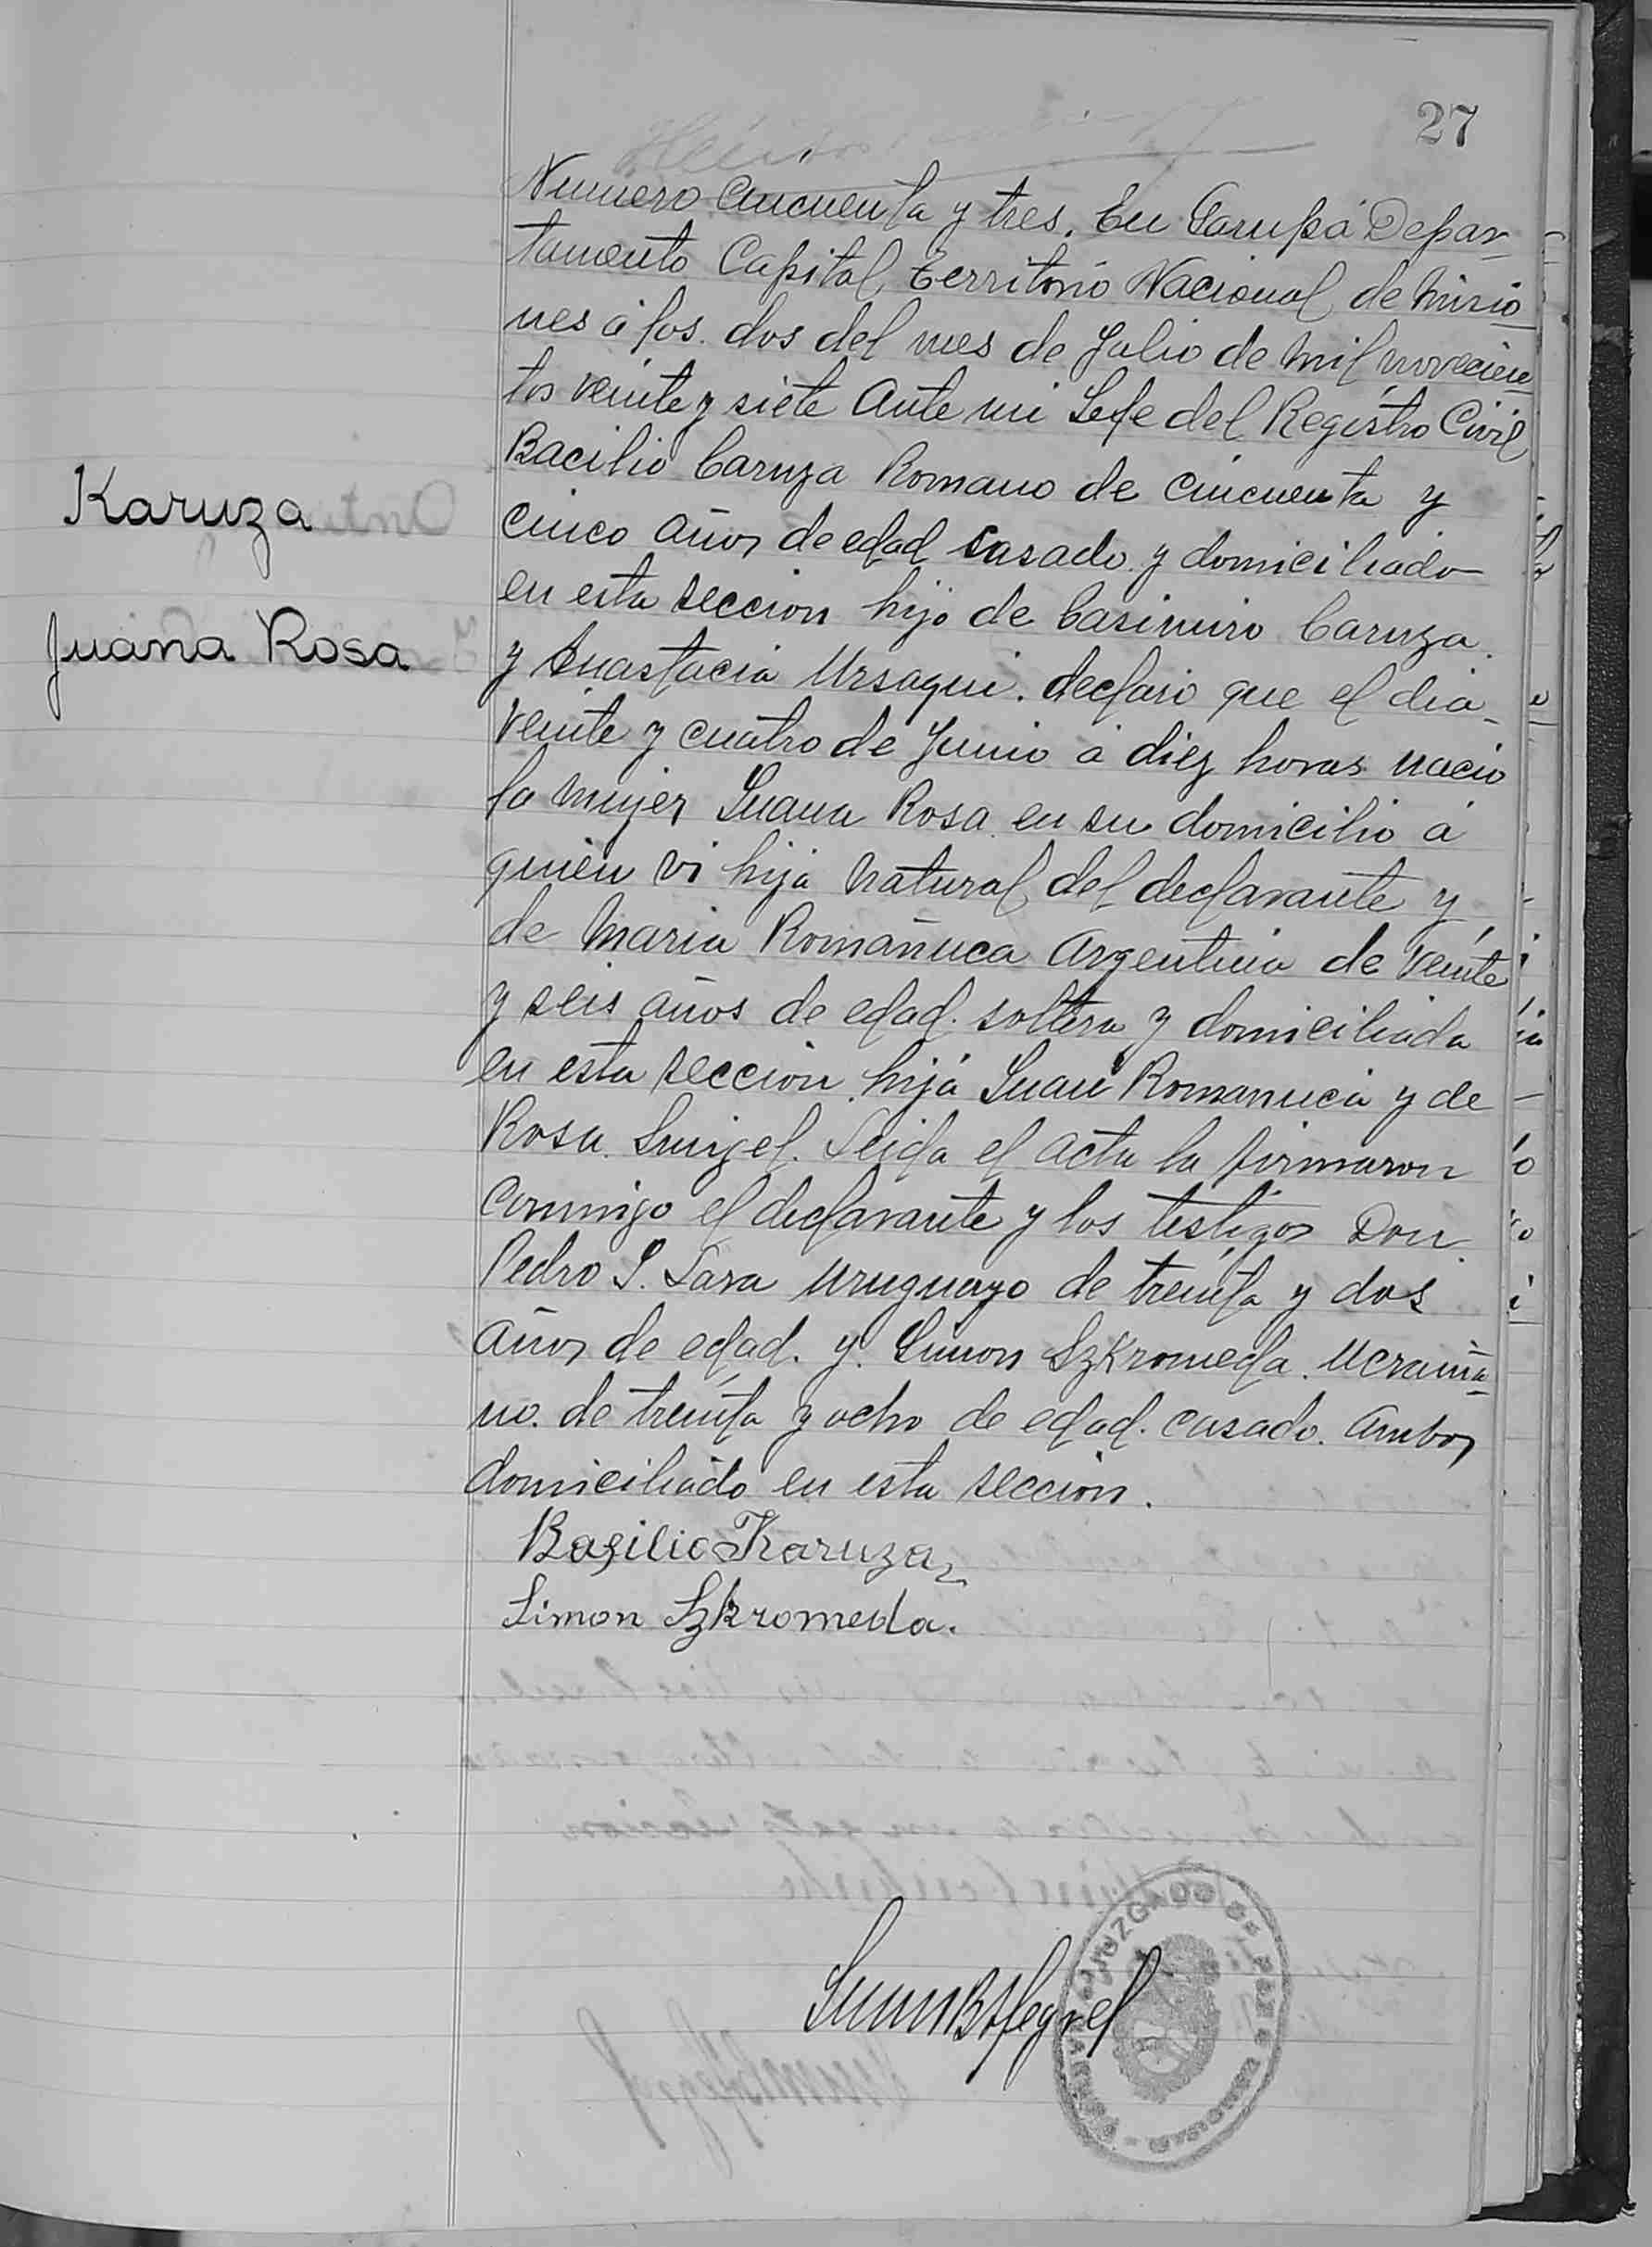 27
Numero Cincuenta y tres. En Garupá Depar-
tamento Capital, Territorio Nacional de Misio-
nes á los dos del mes de Julio de mil novecien-
tos veinte y siete Ante mi Jefe del Registro Civil
Bacilio Caruza Romano de cincuenta y
cinco años de edad casado y domiciliado
en esta seccion hijo de Casimiro Caruza
y Anastacia Ursaqui. declaró que el dia
veinte y cuatro de Junio á diez horas nació
la mujer Juana Rosa en su domicilio á
quien vi hija natural del declarante y
de Maria Romañuca Argentina de veinte
y seis años de edad. soltera y domiciliada
en esta seccion, hija Juan Romanuca y de
Rosa. Leida el acta la firmaron
conmigo el declarante y los testigos Don
Pedro S. Lara uruguayo de treinta y dos
años de edad. y. Simon Szkromeda. Ucrania-
no. de treinta y ocho de edad. casado. Ambos
domiciliado en esta seccion.
Karuza
Juana Rosa
Basilio Karuza
Simon Szkromeda.
JUZGADO DE PAZ